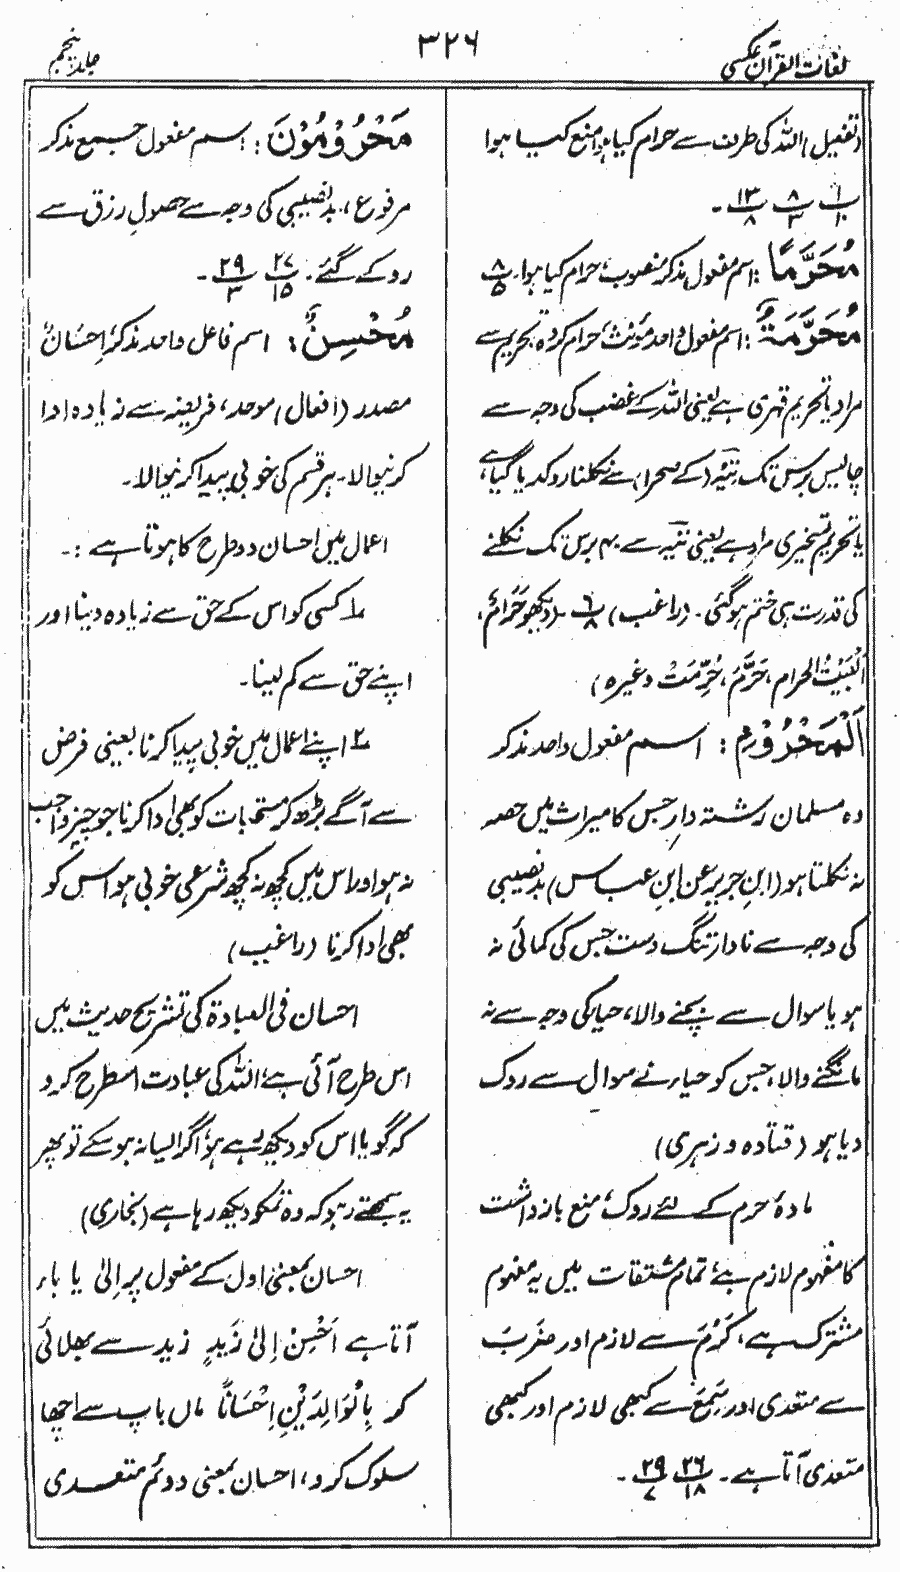 لغات القرآن عکسی
۳۲۶
جلد پنجم
(تفعیل) اللہ کی طرف سے حرام کیا ہوا منع کیا ہوا
۱/۱۰ ۸/۳ ۱۳/۸ ۔
مُحَرَّمًا : اسم مفعول مذکر منصوب، حرام کیا ہوا۔ ۸/۵
مُحَرَّمَةٌ : اسم مفعول واحد مؤنث، حرام کردہ تحریم سے
مراد یا تحریم قہری ہے یعنی اللہ کے غضب کی وجہ سے
چالیس برس تک تیہ (کے صحرا) سے نکلنا روکدیا گیا ہے،
یا تحریم تسخیری مراد ہے یعنی تیہ سے ۴۰ برس تک نکلنے
کی قدرت ہی ختم ہوگئی۔ (راغب) ۶/۸ ۔ (دیکھو حَرَامٌ،
اَلْبَيْتُ الحرام، حَرَّمَ، حُرِّمَتْ وغیرہ)
اَلْمَحْرُوْمِ : اسم مفعول واحد مذکر
وہ مسلمان رشتہ دار جس کا میراث میں حصہ
نہ نکلتا ہو (ابنِ جریر عن ابنِ عباس) بدنصیبی
کی وجہ سے نادار تنگ دست جس کی کمائی نہ
ہو یا سوال سے بچنے والا، حیا کی وجہ سے نہ
مانگنے والا، جس کو حیاء نے سوال سے روک
دیا ہو (قتادہ و زہری)
مادۂ حرم کے لئے روک، منع بازداشت
کا مفہوم لازم ہے، تمام مشتقات میں یہ مفہوم
مشترک ہے، کَرُمَ سے لازم اور ضَرَبَ
سے متعدی اور سَمِعَ سے کبھی لازم اور کبھی
متعدی آتا ہے۔ ۲۶/۱۸ ۲۹/۷ ۔
مَحْرُوْمُوْنَ : اسم مفعول جمع مذکر
مرفوع، بدنصیبی کی وجہ سے حصولِ رزق سے
روکے گئے۔ ۲۷/۱۵ ۲۹/۳ ۔
مُحْسِنٌ : اسم فاعل واحد مذکر، اِحْسَانٌ
مصدر (افعال) موحد، فریضہ سے زیادہ ادا
کرنیوالا۔ ہر قسم کی خوبی پیدا کرنیوالا۔
اعمال میں احسان دو طرح کا ہوتا ہے :۔
۱ کسی کو اس کے حق سے زیادہ دینا اور
اپنے حق سے کم لینا۔
۲ اپنے اعمال میں خوبی پیدا کرنا یعنی فرض
سے آگے بڑھ کر مستحبات کو بھی ادا کرنا جو چیز واجب
نہ ہو اور اس میں کچھ نہ کچھ شرعی خوبی ہو اس کو
بھی ادا کرنا (راغب)
احسان فی العبادۃ کی تشریح حدیث میں
اس طرح آئی ہے، اللہ کی عبادت اسطرح کرو
کہ گویا اس کو دیکھ رہے ہو، اگر ایسا نہ ہو سکے تو پھر
یہ سمجھتے رہو کہ وہ تمکو دیکھ رہا ہے (بخاری)
احسان بمعنیٰ اول کے مفعول پر اِلیٰ یا باء
آتا ہے اَحْسِنْ اِلیٰ زَیدٍ زید سے بھلائی
کر بِالْوَالِدَیْنِ اِحْسَانًا ماں باپ سے اچھا
سلوک کرو، احسان بمعنی دوئم متعدی